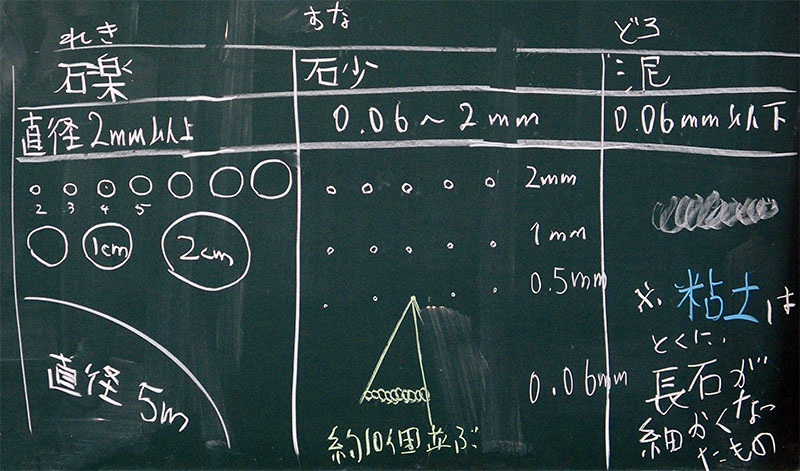 れき
礫
直径2mm以上
2 3 4 5
1cm
2cm
直径 5m
すな
砂
0.06～2mm
2mm
1mm
0.5mm
0.06mm
約10個並ぶ
どろ
泥
0.06mm以下
※粘土は
とくに、
長石が
細かくなっ
たもの